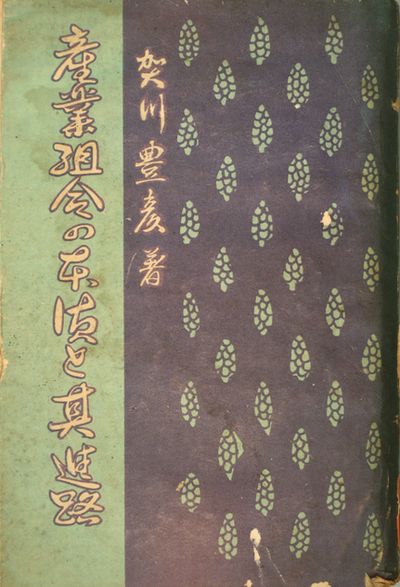 産業組合の本質と其進路
賀川豊彦著